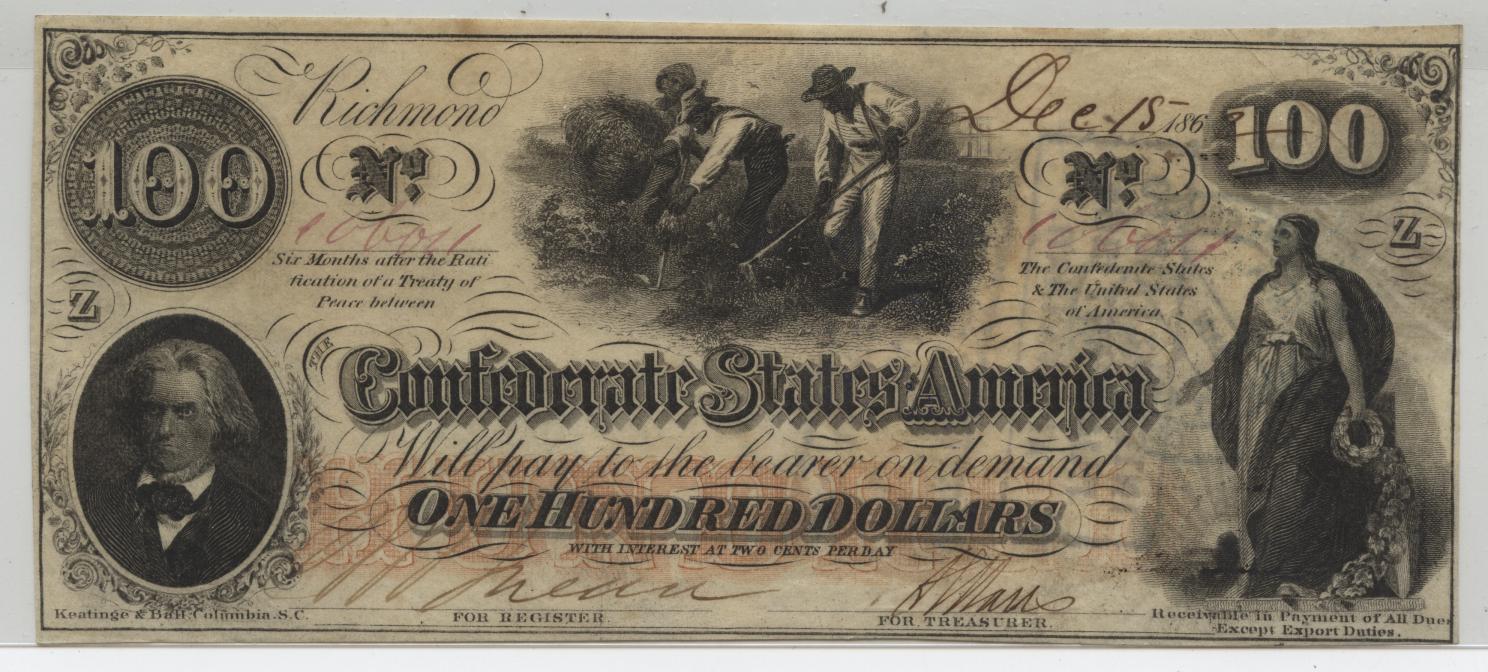 Richmond
Dec. 15 186
100
100
No.
No.
Six Months after the Rati
fication of a Treaty of
Peace between
The Confederate States
& The United States
of America
Z
Z
THE
Confederate States America
Will pay to the bearer on demand
ONE HUNDRED DOLLARS
HUNDRED
WITH INTEREST AT TWO CENTS PER DAY
Keatinge & Ball Columbia. S.C.
FOR REGISTER.
FOR TREASURER.
Receivable in Payment of All Dues
Except Export Duties.